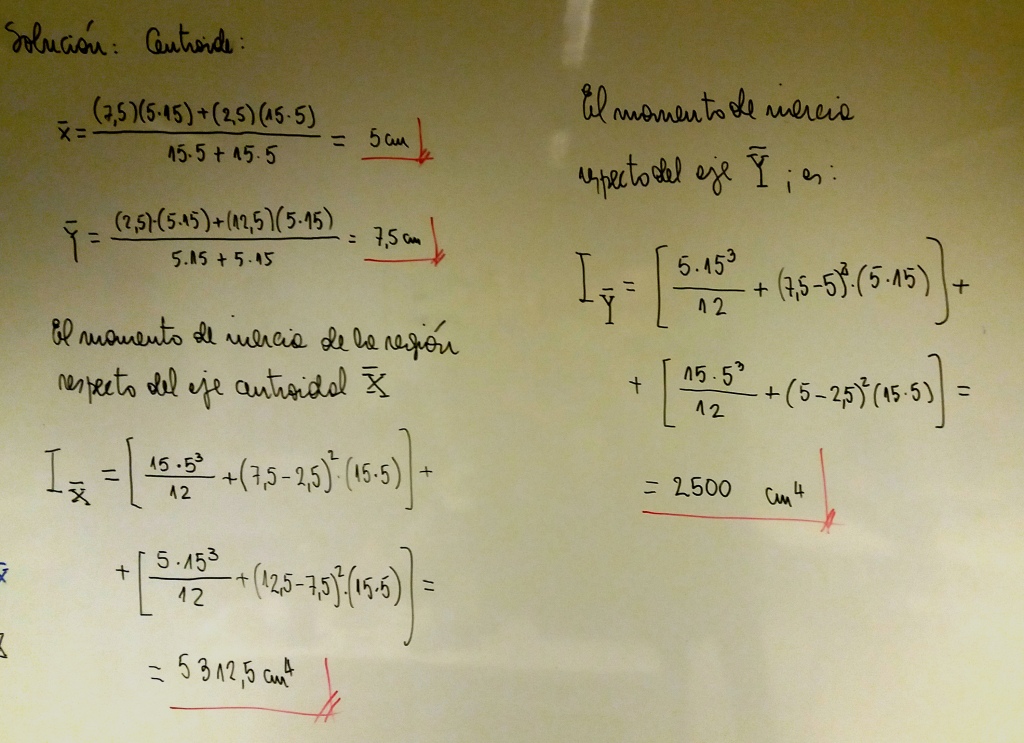 Solución: Centroide:
x̄ = ((7,5)(5·15)+(2,5)(15·5)) / (15·5 + 15·5) = 5 cm
Ȳ = ((2,5)·(5·15)+(12,5)(5·15)) / (5·15 + 5·15) = 7,5 cm
El momento de inercia de la región
respecto del eje centroidal X̄
I_X̄ = [15·5³/12 + (7,5-2,5)²·(15·5)] +
+ [5·15³/12 + (12,5-7,5)²·(15·5)] =
= 5312,5 cm⁴
El momento de inercia
respecto del eje Ȳ ; es:
I_Ȳ = [5·15³/12 + (7,5-5)²·(5·15)] +
+ [15·5³/12 + (5-2,5)²(15·5)] =
= 2500 cm⁴